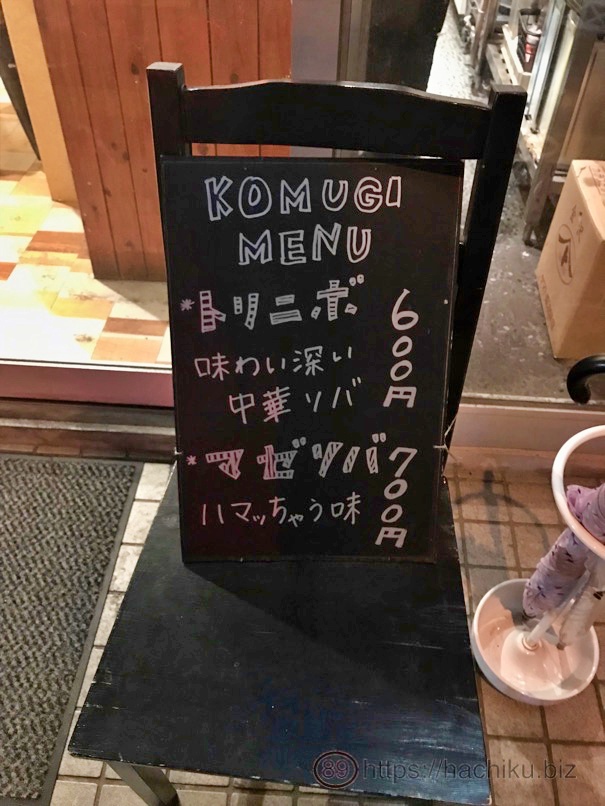 KOMUGI
MENU
*トリニボ 600円
味わい深い
中華ソバ
*マゼソバ 700円
ハマッちゃう味
89 https://hachiku.biz